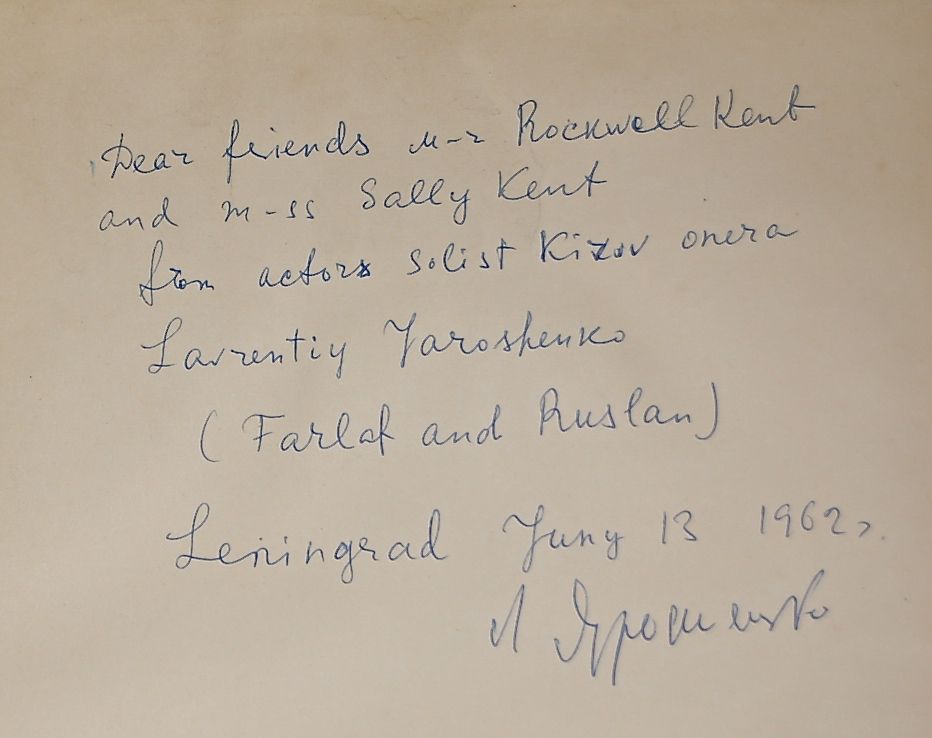 Dear friends м-r Rockwell Kent
and m-ss Sally Kent
from actors solist Kirov onera
Lavrentiy Yaroshenko
(Farlaf and Ruslan)
Leningrad Juny 13 1962г.
Л Ярошенко